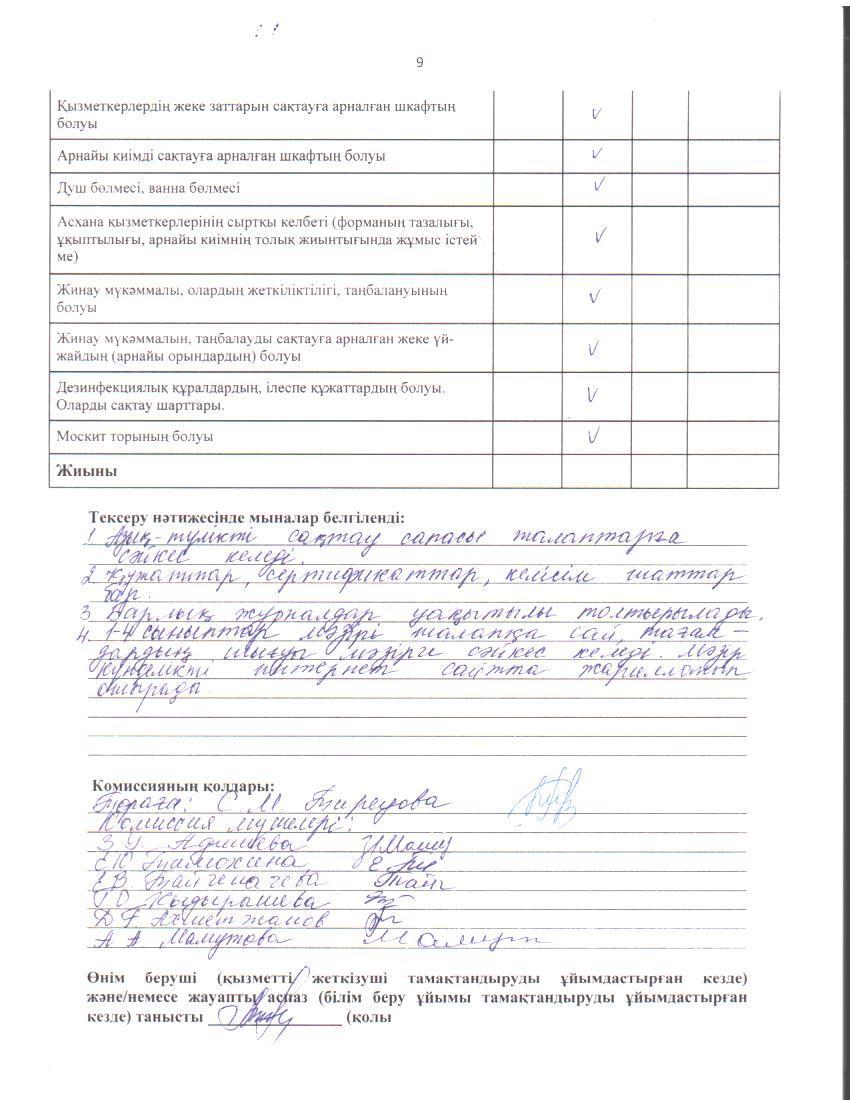 9
Қызметкерлердің жеке заттарын сақтауға арналған шкафтың
болуы
Арнайы киімді сақтауға арналған шкафтың болуы
Душ бөлмесі, ванна бөлмесі
Асхана қызметкерлерінің сыртқы келбеті (форманың тазалығы,
ұқыптылығы, арнайы киімнің толық жиынтығында жұмыс істей
ме)
Жинау мүкәммалы, олардың жеткіліктілігі, таңбалануының
болуы
Жинау мүкәммалын, таңбалауды сақтауға арналған жеке үй-
жайдың (арнайы орындардың) болуы
Дезинфекциялық құралдардың, ілеспе құжаттардың болуы.
Оларды сақтау шарттары.
Москит торының болуы
Жиыны
Тексеру нәтижесінде мыналар белгіленді:
1. Азық-түлікті сақтау сапасы талаптарға
сәйкес келеді.
2. Құжаттар, сертификаттар, келісім шаттар
бар.
3 Барлық журналдар уақытылы толтырылады.
4. 1-4 сыныптар мәзірі талапқа сай, тағам-
дардың шығуы мәзірге сәйкес келеді. Мәзір
күнделікті интернет сайтта жарияланып
отырады.
Комиссияның қолдары:
Төраға: С. М.
Комиссия мүшелері:
З У.
Е.Ю Тимохина
Е.В.
Г.О Кыдырашева
Д Г Ахметжанов
А А. Мамутова
Өнім беруші (қызметті жеткізуші тамақтандыруды ұйымдастырған кезде)
және/немесе жауапты аспаз (білім беру ұйымы тамақтандыруды ұйымдастырған
кезде) танысты (қолы